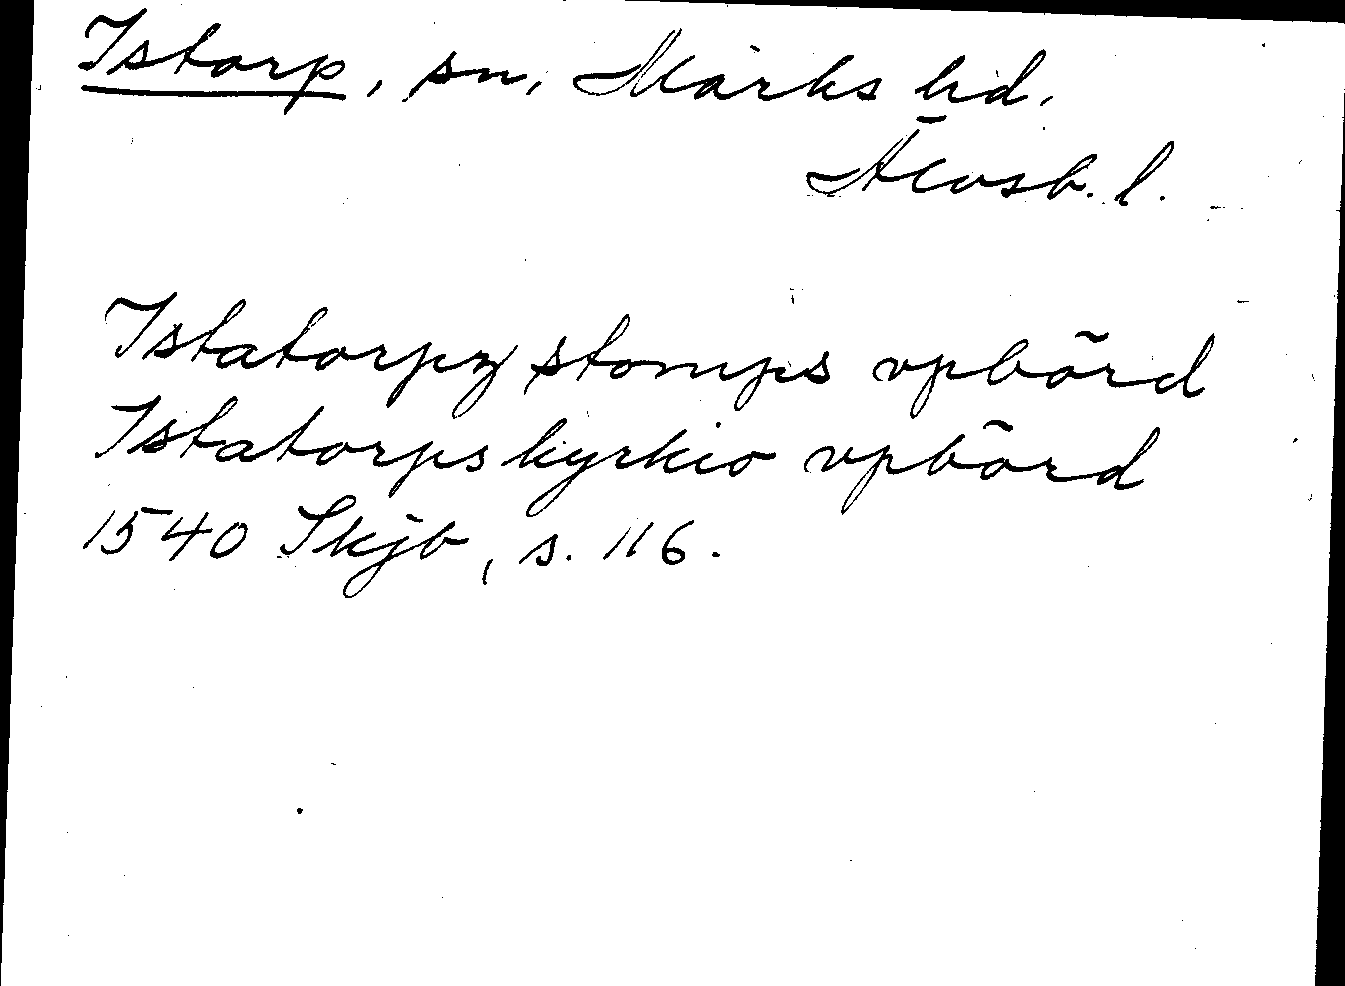 Istorp, sn, Marks hd.
Älvsb. l.
Istatorpz stomps vpbörd
Istatorps kyrkio vpbörd
1540 Skjb, s. 116.